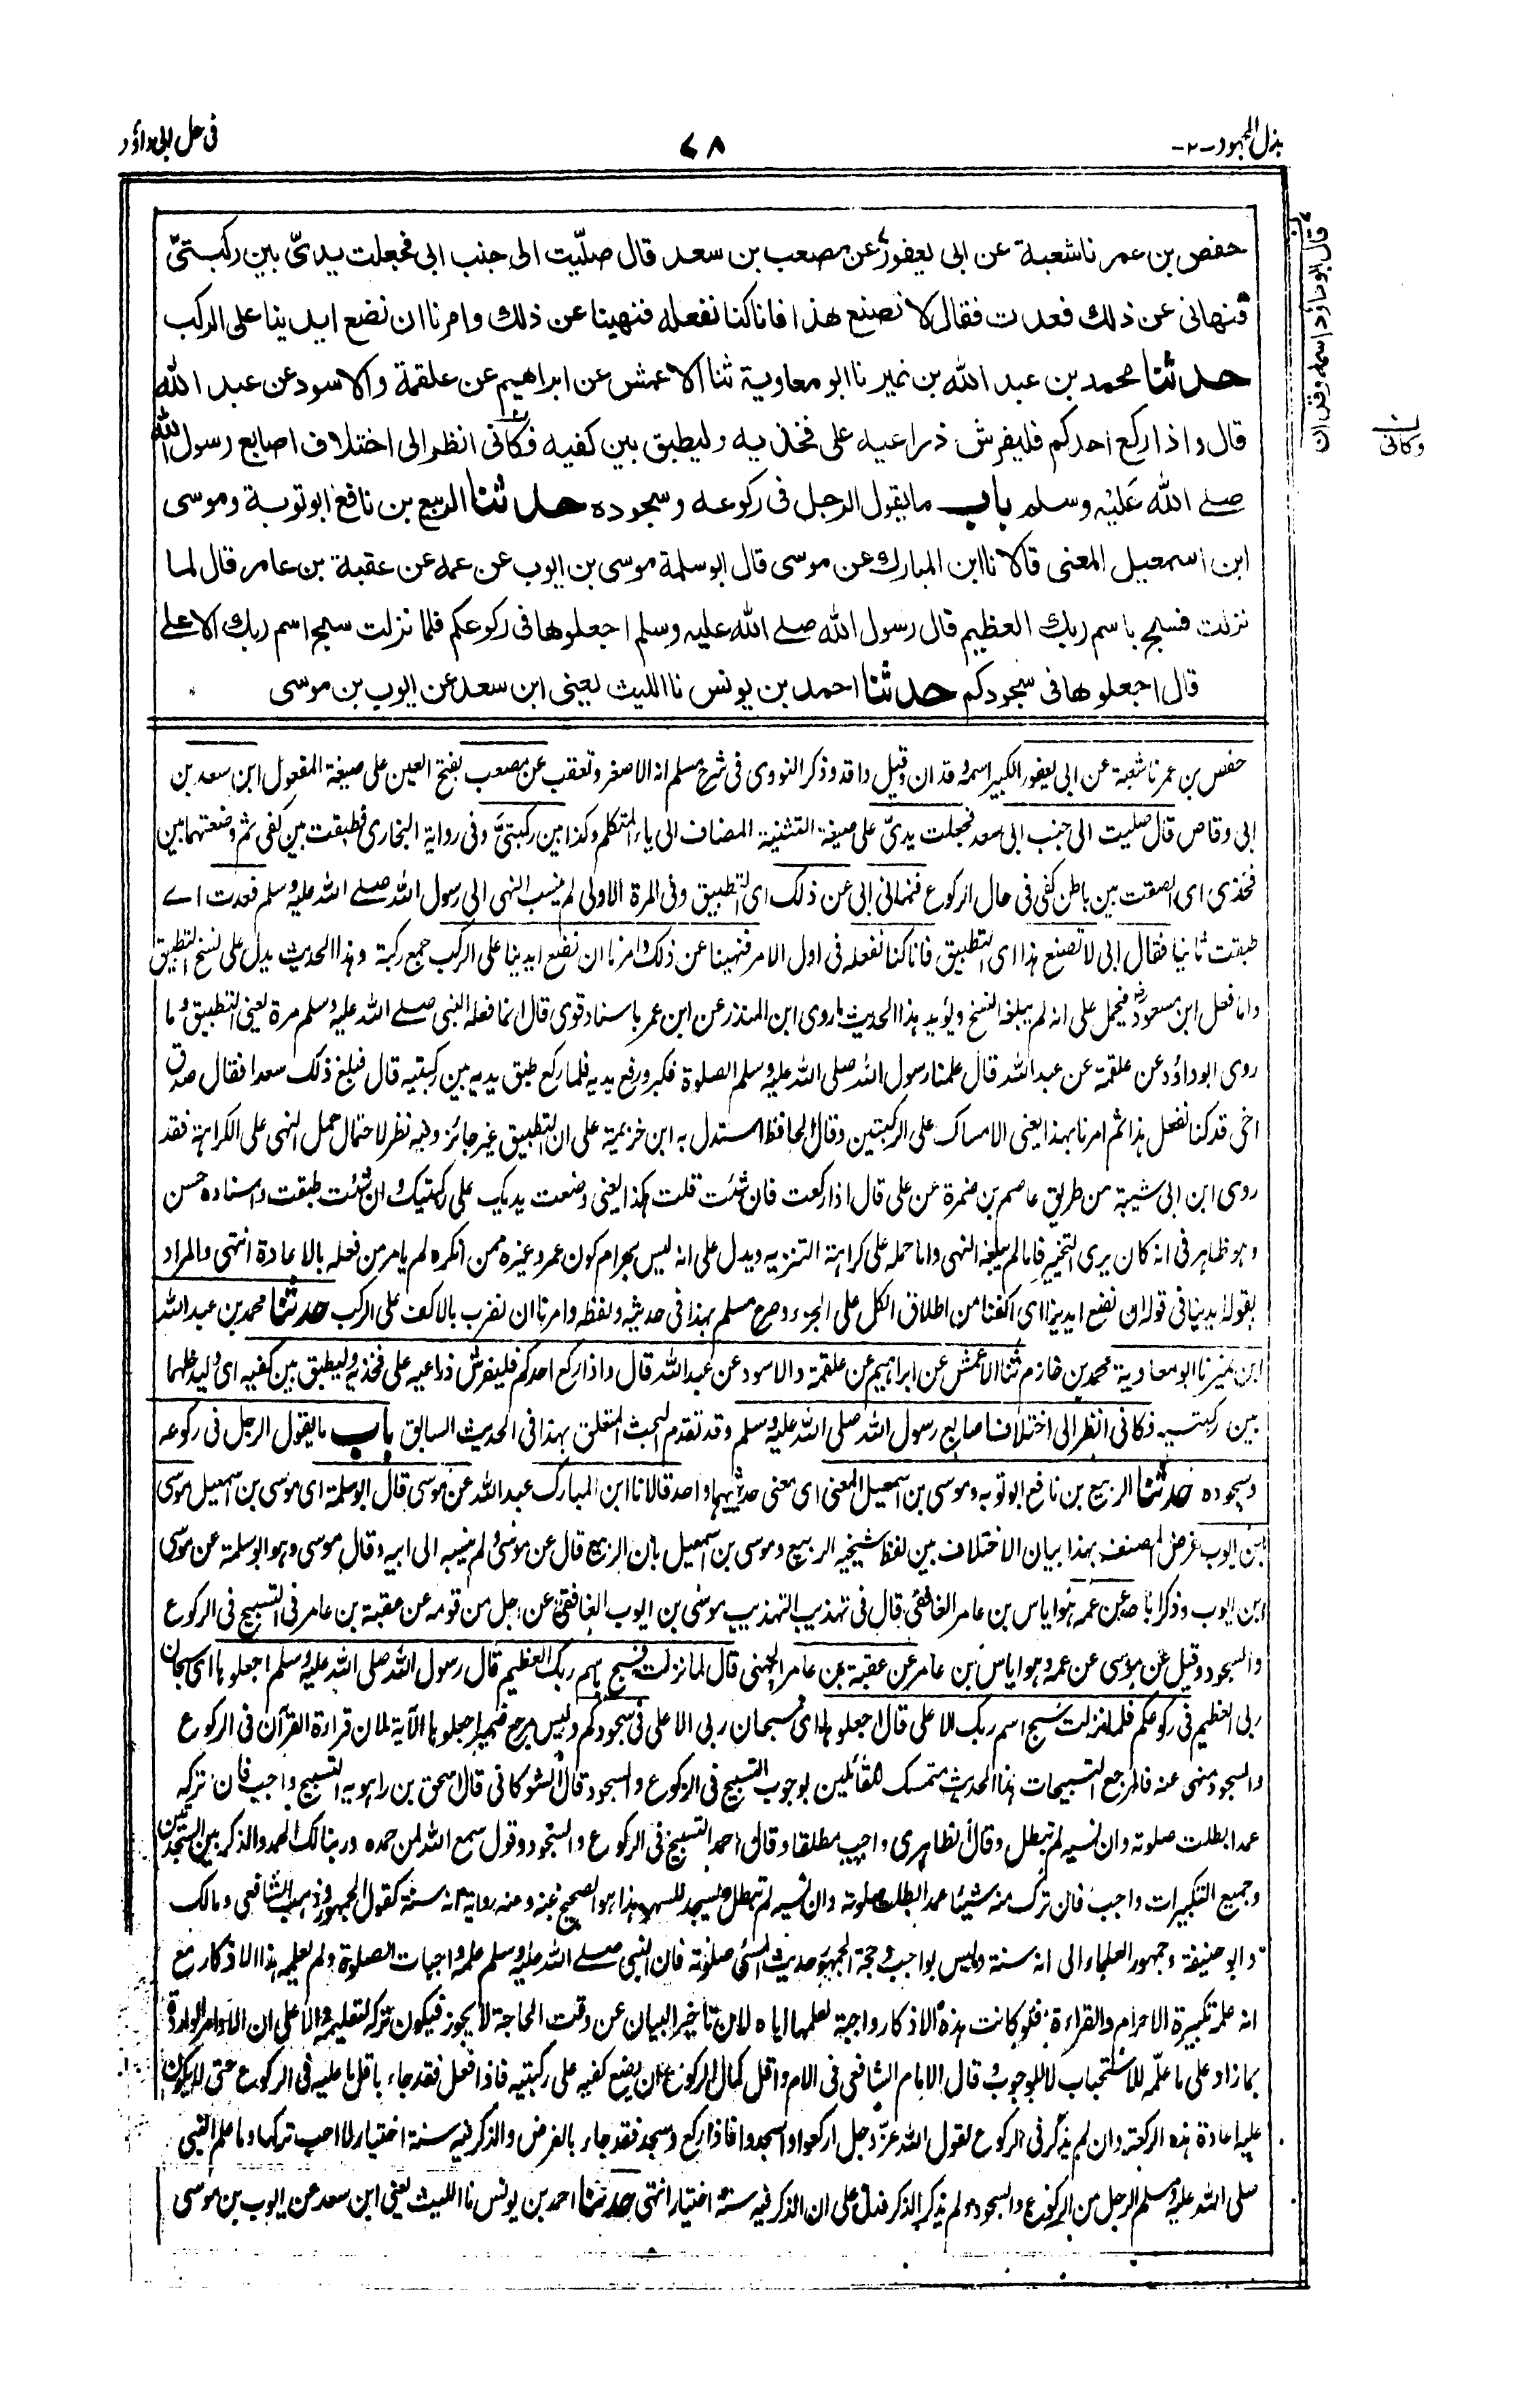 بذل المجهود -٢-
٧٨
فى حل ابى داؤد
حفص بن عمر نا شعبة عن ابى يعفور عن مصعب بن سعد قال صلّيت الى جنب ابى فجعلت يدىّ بين ركبتىّ
فنهانى عن ذلك فعدت فقال لا تصنع هذا فانا كنا نفعله فنهينا عن ذلك وامرنا ان نضع ايدينا على الركب
حدثنا محمد بن عبد الله بن نمير نا ابو معاوية ثنا الاعمش عن ابراهيم عن علقمة والاسود عن عبد الله
قال واذا ركع احدكم فليفرش ذراعيه على فخذيه وليطبق بين كفيه فكانى انظر الى اختلاف اصابع رسول الله
صلے الله عليه وسلم باب ما يقول الرجل فى ركوعه وسجوده حدثنا الربيع بن نافع ابو توبة وموسى
ابن اسمعيل المعنى قالا نا ابن المبارك عن موسى قال ابو سلمة موسى بن ايوب عن عمه عن عقبة بن عامر قال لما
نزلت فسبح باسم ربك العظيم قال رسول الله صلے الله عليه وسلم اجعلوها فى ركوعكم فلما نزلت سبح اسم ربك الاعلے
قال اجعلوها فى سجودكم حدثنا احمد بن يونس نا الليث يعنى ابن سعد عن ايوب بن موسى
قال ابو داؤد اسمه وقدان
وكانى
حفص بن عمر نا شعبة عن ابى يعفور الكبير اسمه وقدان وقيل واقد وذكر النووى فى شرح مسلم انه الاصغر وتعقب عن مصعب بفتح العين على صيغة المفعول ابن سعد بن
ابى وقاص قال صليت الى جنب ابى سعد فجعلت يدىّ على صيغة التثنية المضاف الى ياء المتكلم وكذا بين ركبتىّ وفى رواية البخارى فطبقت بين كفى ثم وضعتهما بين
فخذى اى الصقت بين باطن كفى فى حال الركوع فنهانى ابى عن ذلك اى التطبيق وفى المرة الاولى لم ينسب النهى الى رسول الله صلے الله عليه وسلم فعدت اے
طبقت ثانيا فقال ابى لا تصنع هذا اى التطبيق فانا كنا نفعله فى اول الامر فنهينا عن ذلك وامرنا ان نضع ايدينا على الركب جمع ركبة وهذا الحديث يدل على نسخ التطبيق
واما فعل ابن مسعود فيحمل على انه لم يبلغه النسخ ويؤيد هذا الحديث ما روى ابن المنذر عن ابن عمر باسناد قوى قال انما فعله النبى صلے الله عليه وسلم مرة يعنى التطبيق وما
روى ابو داؤد عن علقمة عن عبد الله قال علمنا رسول الله صلى الله عليه وسلم الصلوة فكبر ورفع يديه فلما ركع طبق يديه بين ركبتيه قال فبلغ ذلك سعدا فقال صدق
اخى قد كنا نفعل هذا ثم امرنا بهذا يعنى الامساك على الركبتين وقال الحافظ استدل به ابن خزيمة على ان التطبيق غير جائز وفيه نظر لاحتمال حمل النهى على الكراهة فقد
روى ابن ابى شيبة من طريق عاصم بن ضمرة عن على قال اذا ركعت فان شئت قلت هكذا يعنى وضعت يديك على ركبتيك وان شئت طبقت واسناده حسن
وهو ظاهر فى انه كان يرى التخيير فاما لم يبلغه النهى واما حمله على كراهة التنزيه ويدل على انه ليس بحرام كون عمر وغيره ممن انكره لم يامر من فعله بالاعادة انتهى والمراد
بقوله ايدينا فى قوله ان نضع ايدينا اى اكفنا من اطلاق الكل على الجزء وصرح مسلم بهذا فى حديثه ولفظه وامرنا ان نضرب بالاكف على الركب حدثنا محمد بن عبد الله
ابن نمير نا ابو معاوية محمد بن خازم ثنا الاعمش عن ابراهيم عن علقمة والاسود عن عبد الله قال واذا ركع احدكم فليفرش ذراعيه على فخذيه وليطبق بين كفيه اى وليدخلهما
بين ركبتيه فكانى انظر الى اختلاف اصابع رسول الله صلى الله عليه وسلم وقد تقدم البحث المتعلق بهذا فى الحديث السابق باب ما يقول الرجل فى ركوعه
وسجوده حدثنا الربيع بن نافع ابو توبه وموسى بن اسمعيل المعنى اى معنى حديثيهما واحد قالا نا ابن المبارك عبد الله عن موسى قال ابو سلمة اى موسى بن اسمعيل موسى
بن ايوب غرض المصنف بهذا بيان الاختلاف بين لفظ شيخيه الربيع وموسى بن اسمعيل بان الربيع قال عن موسى ولم ينسبه الى ابيه وقال موسى وهو ابو سلمة عن موسى
ابن ايوب وذكر اباه عن عمه هو اياس بن عامر الغافقى قال فى تهذيب التهذيب موسى بن ايوب الغافقى عن رجل من قومه عن عقبة بن عامر فى التسبيح فى الركوع
والسجود وقيل عن موسى عن عمه وهو اياس بن عامر عن عقبة بن عامر الجهنى قال لما نزلت فسبح باسم ربك العظيم قال رسول الله صلى الله عليه وسلم اجعلوها اى سبحان
ربى العظيم فى ركوعكم فلما نزلت سبح اسم ربك الاعلى قال اجعلوها اى سبحان ربى الاعلى فى سجودكم وليس مرجع ضمير اجعلوها الآية لان قراءة القرآن فى الركوع
والسجود منهى عنه فالمرجع التسبيحات هذا الحديث متمسك للقائلين بوجوب التسبيح فى الركوع والسجود قال الشوكانى قال اسحق بن راهويه التسبيح واجب فان تركه
عمدا بطلت صلوته وان نسيه لم تبطل وقال الظاهرى واجب مطلقا وقال احمد التسبيح فى الركوع والسجود وقول سمع الله لمن حمده وربنا لك الحمد والذكر بين السجدتين
وجميع التكبيرات واجب فان ترك منه شيئا عمدا بطلت صلوته وان نسيه لم تبطل ويسجد للسهو هذا هو الصحيح عنه وعنه رواية انه سنة كقول الجمهور وذهب الشافعى ومالك
وابو حنيفة وجمهور العلماء الى انه سنة وليس بواجب وحجة الجمهور حديث المسئ صلوته فان النبى صلے الله عليه وسلم علمه واجبات الصلوة ولم يعلمه هذا الاذكار مع
انه علمه تكبيرة الاحرام والقراءة فلو كانت هذه الاذكار واجبة لعلمها اياه لان تاخير البيان عن وقت الحاجة لا يجوز فيكون تركه لتعليمه دالا على ان الاوامر الواردة
بما زاد على ما علّمه للاستحباب لا للوجوب قال الامام الشافعى فى الام واقل كمال الركوع ان يضع كفيه على ركبتيه فاذا فعل فقد جاء باقل ما عليه فى الركوع حتى لا يكون
عليه اعادة هذه الركعة وان لم يذكر فى الركوع لقول الله عزّ وجل اركعوا واسجدوا فاذا ركع وسجد فقد جاء بالفرض والذكر فيه سنة اختيار لا احب تركها وما علم النبى
صلى الله عليه وسلم الرجل من الركوع والسجود ولم يذكر الذكر فدل على ان الذكر فيه سنة اختيار انتهى حدثنا احمد بن يونس نا الليث يعنى ابن سعد عن ايوب بن موسى